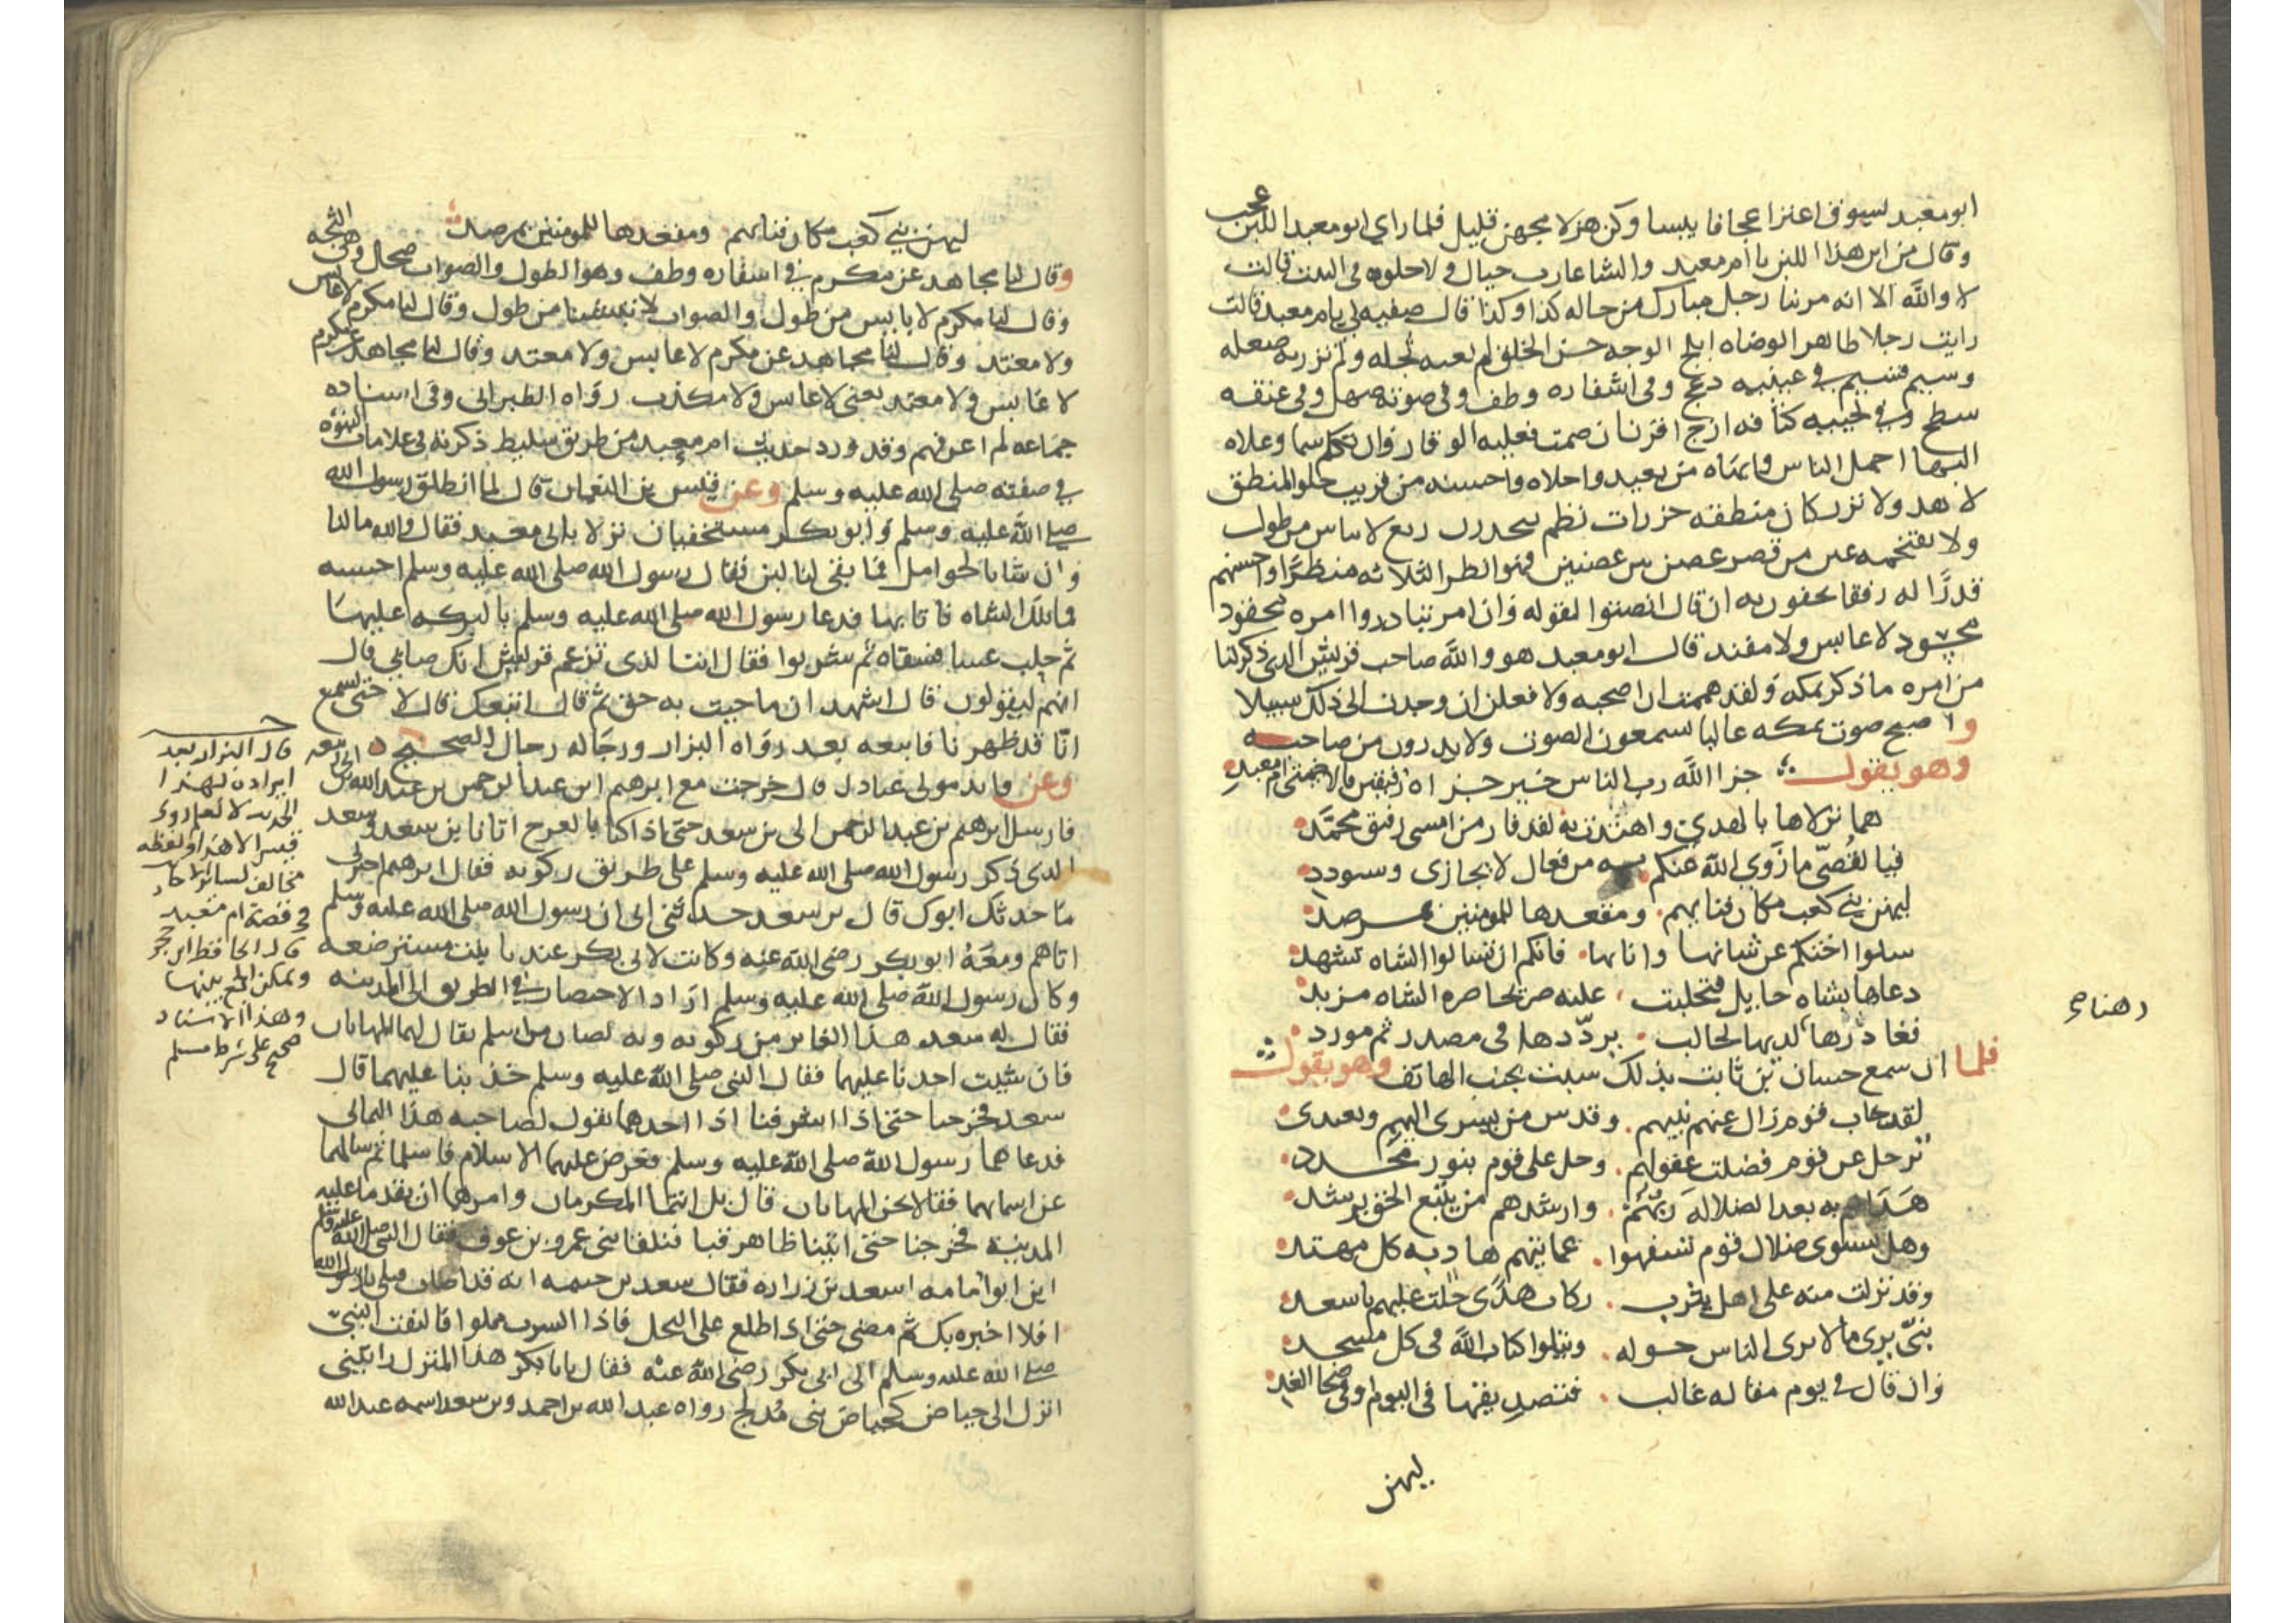 ابو معبد يسوق اعنزا عجافا يلبسا وكن هزلا مخهن قليل فلما راي ابو معبد اللبن عجب
وقال من اين هذا اللبن يا ام معبد والشا عازب حيال ولا حلوبه في البيت قالت
لا والله الا انه مر بنا رجل مبارك من حاله كذا وكذا قال صفيه لي يام معبد قالت
رايت رجلا ظاهر الوضاه ابلج الوجه حسن الخلق لم تعبه ثجله ولم تزر به صعله
وسيم قسيم في عينيه دعج وفي اشفاره وطف وفي صوته صهل وفي عنقه
سطح وفي لحيته كثافه ازج اقرن ان صمت فعليه الوقار وان تكلم سما وعلاه
البها اجمل الناس وابهاه من بعيد واحلاه واحسنه من قريب حلو المنطق
لا هدر ولا نزر كان منطقه خرزات نظم يتحدرن ربع لا باس من طول
ولا تقتحمه عين من قصر غصن بين غصنين فهو انظر الثلاثه منظرا واحسنهم
قدرا له رفقا يحفون به ان قال انصتوا لقوله وان امر تبادروا امره محفود
محشود لا عابس ولا مفند قال ابو معبد هو والله صاحب قريش الذي ذكر لنا
من امره ما ذكر بمكه ولقد هممت ان اصحبه ولافعلن ان وجدت الى ذلك سبيلا
واصبح صوت بمكه عاليا يسمعون الصوت ولا يدرون من صاحبه
وهو يقول جزا الله رب الناس خير جزاه رفيقين قالا خيمتي ام معبد
هما نزلاها بالهدي واهتدت به لقد فاز من امسى رفيق محمد
فيا لقصي ما زوي الله عنكم به من فعال لا تجازى وسودد
ليهن بني كعب مكان فتاتهم ومقعدها للمومنين بمرصد
سلوا اختكم عن شاتها واناها فانكم ان تسالوا الشاه تشهد
دعاها بشاه حايل فتحلبت عليه صريحا ضره الشاه مزبد
فغادرها لديها لحالب يرددها في مصدر ثم مورد
فلما ان سمع حسان بن ثابت بذلك شبب يجيب الهاتف وهو يقول
لقد خاب قوم زال عنهم نبيهم وقدس من يسرى اليهم ويغتدى
ترحل عن قوم فضلت عقولهم وحل على قوم بنور مجدد
هداهم به بعد الضلاله ربهم وارشدهم من يتبع الحق يرشد
وهل يستوى ضلال قوم تسفهوا عمايتهم هاد به كل مهتد
وقد نزلت منه على اهل يثرب ركاب هدى حلت عليهم باسعد
نبي يرى ما لا يرى الناس حوله ويتلوا كتاب الله في كل مسجد
وان قال في يوم مقاله غالب فتصديقها في اليوم او في ضحا الغد
ليهن
ليهن بني كعب مكان فتاتهم ومقعدها للمومنين بمرصد
وقال لنا مجاهد عن مكرم في اشفاره وطف وهو الطول والصواب صحل وهي الثجه
وقال لنا مكرم لا يابس من طول والصواب لا يتشنا من طول وقال لنا مكرم لا عابس
ولا معتد وقال لنا مجاهد عن مكرم لا عابس ولا معتد وقال لنا مجاهد عن مكرم
لا عابس ولا معتد يعنى لا عابس ولا مكذب رواه الطبراني وفي اسناده
جماعه لم اعرفهم وقد ورد حديث ام معبد من طريق سليط ذكرته في علامات النبوه
في صفته صلى الله عليه وسلم وعن قيس بن النعمان قال لما انطلق رسول الله
صلى الله عليه وسلم وابو بكر مستخفيان نزلا بابي معبد فقال والله مالنا
وان شانا لحوامل فما بقى لنا لبن فقال رسول الله صلى الله عليه وسلم احسبه
فما تلك الشاه فاتا بها فدعا رسول الله صلى الله عليه وسلم بالبركه عليها
ثم حلب عسا فسقاه ثم شربوا فقال انت الذى تزعم قريش انك صابئ قال
انهم ليقولون قال اشهد ان ما جيت به حق ثم قال اتبعك قال لا حتى تسمع
انا قد ظهرنا فاتبعه بعد رواه البزار ورجاله رجال الصحيح
وعن فايد مولى عبادل قال خرجت مع ابرهيم ابن عبد الرحمن بن عبد الله بن ابي ربيعه
فارسل ابرهيم بن عبد الرحمن الى بن سعد حتى اذا كنا بالعرج اتانا بن سعد وسعد
الذي ذكر رسول الله صلى الله عليه وسلم على طريق ركوبه فقال ابرهيم اخبرني
ما حدثك ابوك قال بن سعد حدثني ابي ان رسول الله صلى الله عليه وسلم
اتاهم ومعه ابو بكر رضى الله عنه وكانت لابي بكر عندنا بنت مسترضعه
وكان رسول الله صلى الله عليه وسلم اراد الاختصار في الطريق الى المدينه
فقال له سعد هذا الغاير من ركوبه وبه لصان من اسلم يقال لهما المهانان
فان شيت اخذنا عليهما فقال النبي صلى الله عليه وسلم خذ بنا عليهما قال
سعد فخرجنا حتى اذا اشرفنا اذا احدهما يقول لصاحبه هذا اليماني
فدعاهما رسول الله صلى الله عليه وسلم فعرض عليهما الاسلام فاسلما ثم سالهما
عن اسمايهما فقالا نحن المهانان قال بل انتما المكرمان وامرهما ان يقدما عليه
المدينة فخرجنا حتى اتينا ظاهر قبا فتلقانا بنى عمرو بن عوف فقال النبي صلى الله عليه وسلم
اين ابو امامه اسعد بن زراره فقال سعد بن خيثمه انه قد اصاب قبلى يا رسول الله
افلا اخبره بك ثم مضى حتى اذا اطلع على النخل فاذا السرب مملوا فالتفت النبي
صلى الله عليه وسلم الى ابي بكر رضى الله عنه فقال يابا بكر هذا المنزل رايتني
انزل الى حياض كحياض بنى مدلج رواه عبد الله بن احمد وبن سعد اسمه عبد الله
قال البزار بعد
ايراده لهذا
الحديث لا نعلم روى
قيس الا هذا ولفظه
مخالف لسائر الاحاد
في قصة ام معبد
قال الحافظ ابن حجر
ويمكن الجمع بينهما
وهذا الاسناد
صحيح على شرط مسلم